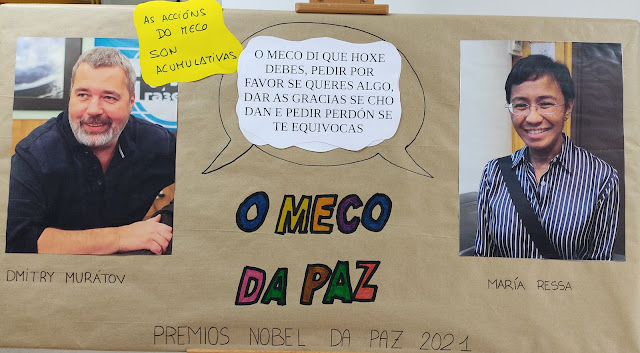 AS ACCIÓNS
DO MECO
SON
ACUMULATIVAS.
O MECO DI QUE HOXE
DEBES, PEDIR POR
FAVOR SE QUERES ALGO,
DAR AS GRACIAS SE CHO
DAN E PEDIR PERDÓN SE
TE EQUIVOCAS
O MECO
DA PAZ
DMITRY MURÁTOV
MARÍA RESSA
PREMIOS NOBEL DA PAZ 2021